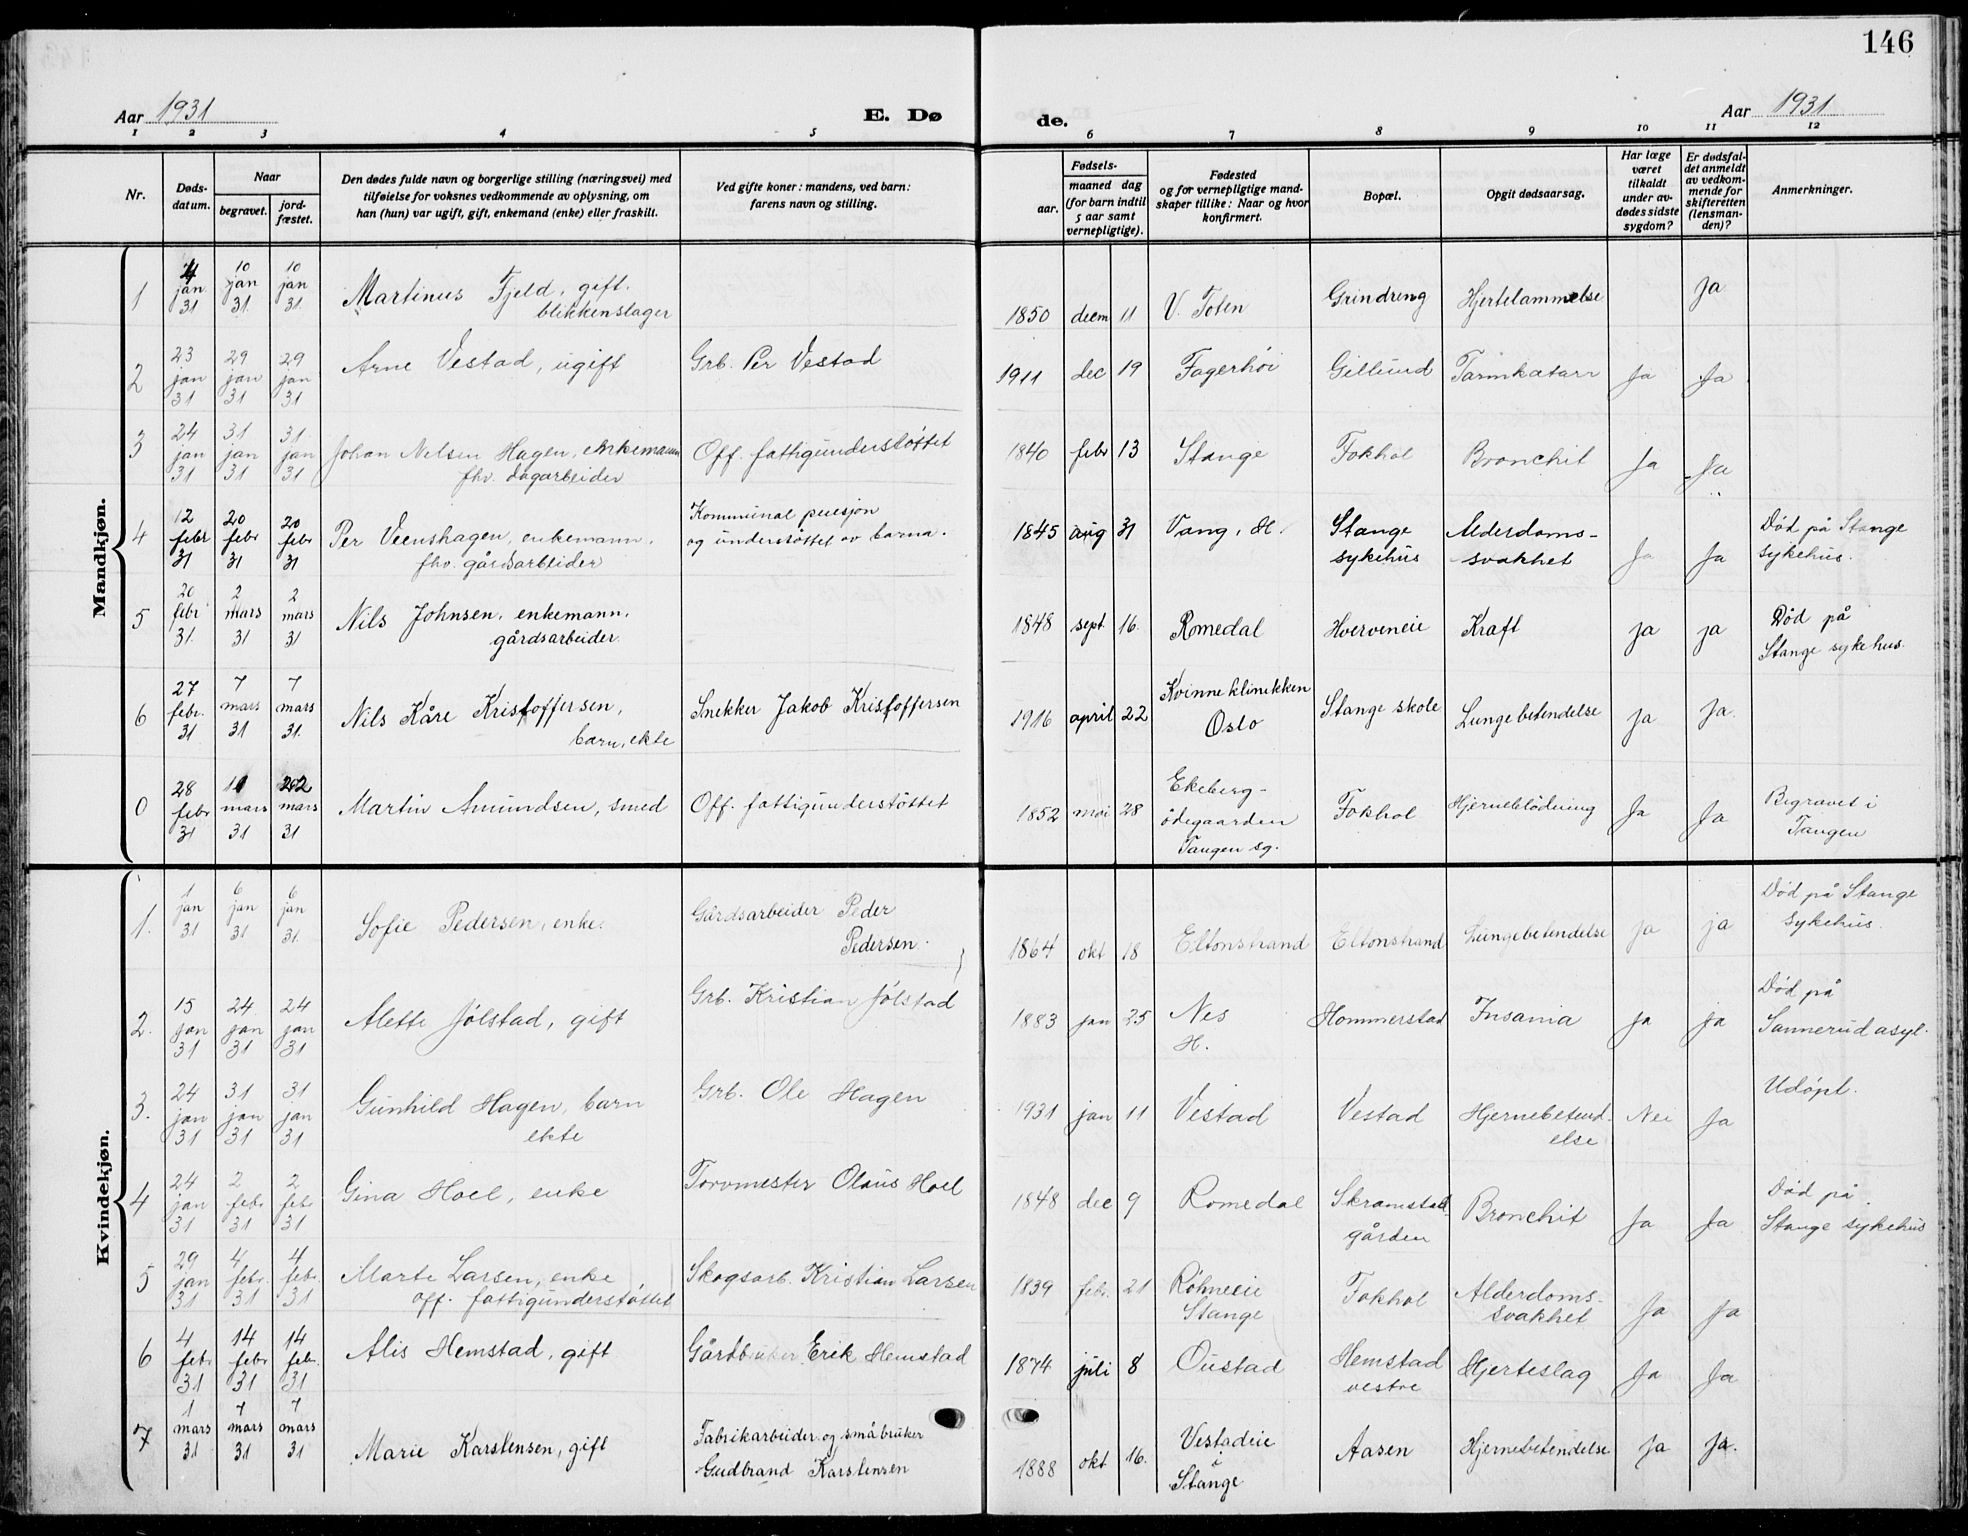 146
Aar 1931 E. Dø de. Aar 1931
1 2 3 4 5 6 7 8 9 10 11 12
Nr.
Døds-
datum.
Naar
begravet.
jord-
fæstet.
Den dødes fulde navn og borgerlige stilling (næringsvei) med
tilføielse for voksnes vedkommende av oplysning, om
han (hun) var ugift, gift, enkemand (enke) eller fraskilt.
Ved gifte koner: mandens, ved barn:
farens navn og stilling.
Fødsels-
aar.
maaned dag
(for barn indtil
5 aar samt
vernepligtige).
Fødested
og for vernepligtige mand-
skaper tillike: Naar og hvor
konfirmert.
Bopæl.
Opgit dødsaarsag.
Har læge
været
tilkaldt
under av-
dødes sidste
sygdom?
Er dødsfal-
det anmeldt
av vedkom-
mende for
skifteretten
(lensman-
den)?
Anmerkninger.
Mandkjøn.
1 4 jan 31 10 jan 31 10 jan 31 Martinus Fjeld, gift.
blikkenslager
1850 decm 11 V. Toten Grindreng Hjertelammelse Ja
2 23 jan 31 29 jan 31 29 jan 31 Arne Vestad, ugift Grb. Per Vestad
1911 dec 19 Fagerhöi Gillund Tarmkatarr Ja Ja
3 24 jan 31 31 jan 31 31 jan 31 Johan Nelsen Hagen, enkemann
fhv. dagarbeider
Off. fattigunderstöttet
1840 febr 13 Stange Fokhol Bronchit Ja Ja
4 12 febr 31 20 febr 31 20 febr 31 Per Veenshagen, enkemann.
fhv. gårdsarbeider
Kommunal pensjon
og understöttet av barna.
1845 aug 31 Vang, H. Stange
sykehus
Alderdoms-
svakhet
Ja Ja
Död på Stange
sykehus.
5 20 febr 31. 2 mars 31 2 mars 31 Nils Johnsen, enkemann.
gårdsarbeider.
1848 sept. 16. Romedal Hverveneie Kraft ja ja
Död på
Stange sykehus.
6 27 febr. 31 7 mars 31 7 mars 31. Nils Kåre Kristoffersen,
barn, ekte
Snekker Jakob Kristoffersen
1916 april 22 Kvinneklinikken
Oslo
Stange skole Lungebetendelse Ja Ja.
0 28 febr 31 mars 31 mars 31 Martin Amundsen, smed Off. fattigunderstöttet
1852 mai 28 Ekeberg-
ödegaarden
Tangen sg.
Fokhol Hjerneblödning Ja Ja
Begravet i
Tangen
Kvindekjøn.
1. 1 jan 31 6 jan 31 6 jan 31. Sofie Pedersen, enke.
Gårdsarbeider Peder
Pedersen.
1864 okt 18 Eltonstrand Eltonstrand Lungebetendelse ja ja
Död på Stange
sykehus.
2. 15 jan 31 24 jan 31 24 jan 31 Alette Jölstad, gift Grb. Kristian Jölstad
1883 jan 25 Nes
H.
Hommerstad Insania ja ja
Död på
Sannerud asyl.
3. 24 jan 31 31 jan 31 31 jan 31 Gunhild Hagen, barn
ekte
Grb. Ole Hagen
1931 jan 11 Vestad Vestad Hjernebetend-
else
Nei Ja
Udöpt.
4 24 jan 31 2 febr 31 2 febr 31 Gina Hoel, enke Torvmester Olaus Hoel
1848 dec 9 Romedal Skramstad-
gården
Bronchit Ja Ja
Död på
Stange sykehus
5 29 jan 31 4 febr. 31 4 febr. 31 Marte Larsen, enke,
off. fattigunderstöttet
Skogsarb. Kristian Larsen
1839 febr. 21 Röhneeie
Stange
Fokhol Alderdoms-
svakhet
Ja Ja
6 4 febr 31 14 febr 31 14 febr. 31 Alis Hemstad, gift Gårdbruker Erik Hemstad
1874 juli 8 Oustad Hemstad
vestre
Hjerteslag Ja Ja
7 1 mars 31 7 mars 31 7 mars 31 Marie Karstensen, gift
Fabrikarbeider og småbruker
Gudbrand Karstensen
1888 okt 16. Vestadeie
i
Stange
Aasen Hjernebetendelse Ja Ja.